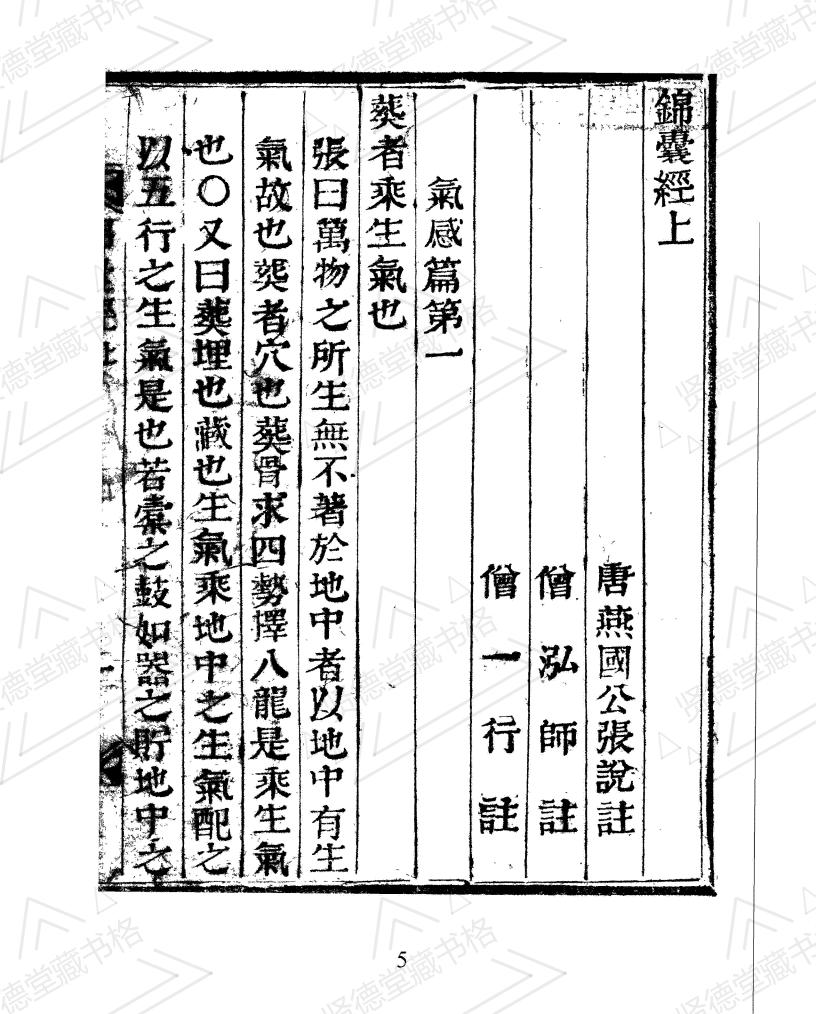 錦囊經上
唐燕國公張說註
僧泓師註
僧一行註
氣感篇第一
葬者乘生氣也
張曰萬物之所生無不著於地中者以地中有生
氣故也葬者穴也葬骨求四勢擇八龍是乘生氣
也○又曰葬埋也藏也生氣乘地中之生氣配之
以五行之生氣是也若橐之鼓如器之貯地中之
5
贤德堂藏书格